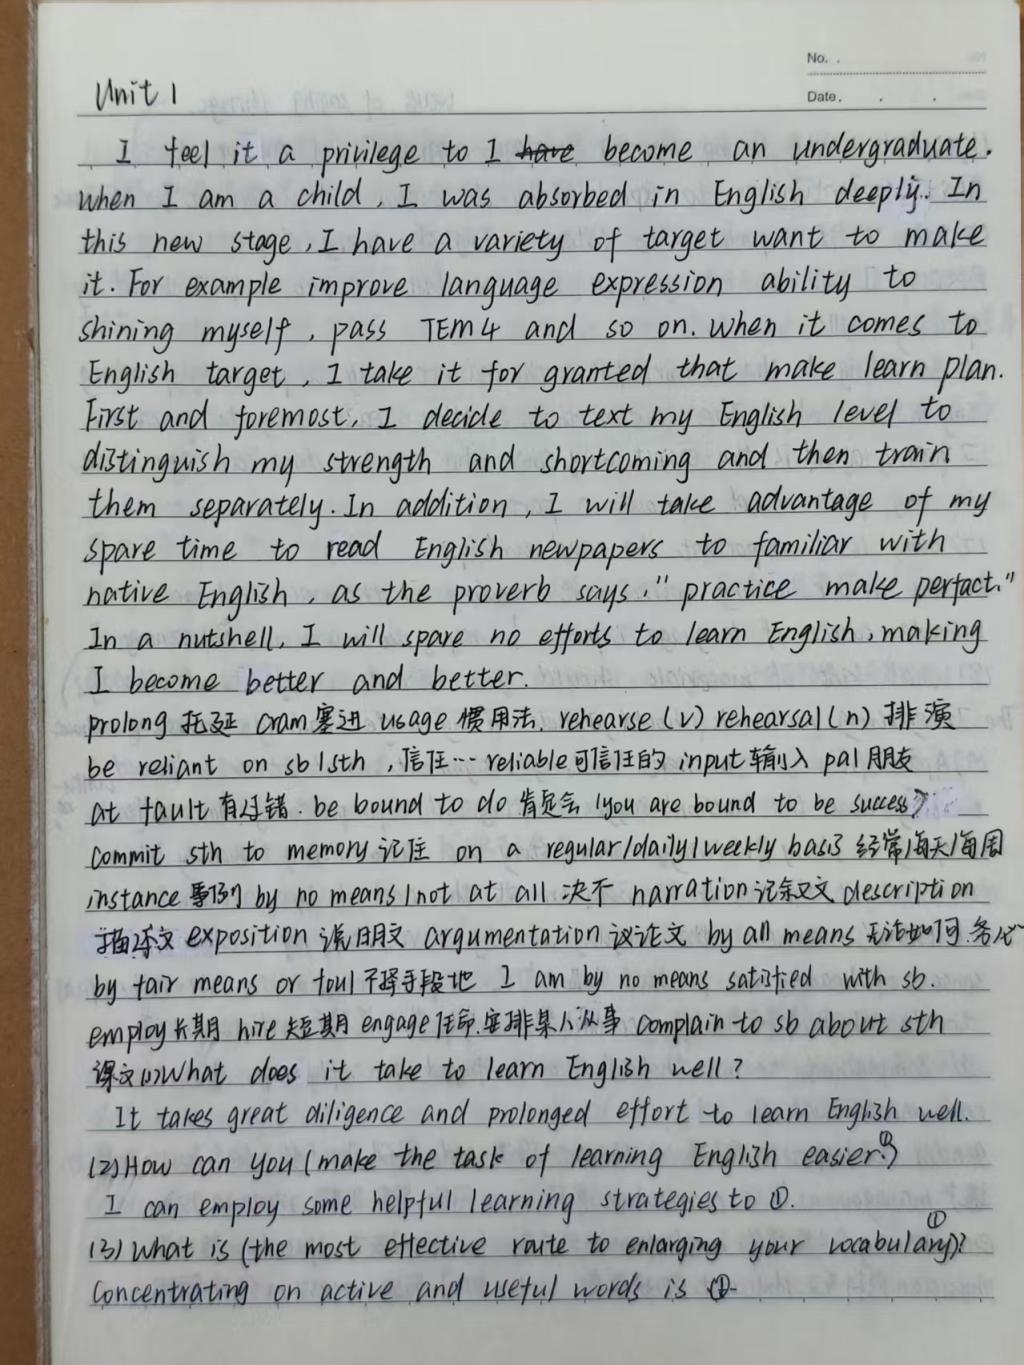 No.
Date.
Unit 1
I feel it a privilege to I have become an undergraduate.
When I am a child, I was absorbed in English deeply. In
this new stage, I have a variety of target want to make
it. For example improve language expression ability to
shining myself, pass TEM4 and so on. When it comes to
English target, I take it for granted that make learn plan.
First and foremost, I decide to text my English level to
distinguish my strength and shortcoming and then train
them separately. In addition, I will take advantage of my
spare time to read English newpapers to familiar with
native English, as the proverb says, "practice make perfact."
In a nutshell, I will spare no efforts to learn English, making
I become better and better.
prolong 拖延 cram 塞进 usage 惯用法. rehearse (v) rehearsal (n) 排演
be reliant on sb/sth, 信任… reliable 可信任的 input 输入 pal 朋友
at fault 有过错. be bound to do 肯定会 (you are bound to be success)
commit sth to memory 记住 on a regular/daily/weekly basis 经常/每天/每周
instance 事例 by no means/not at all 决不 narration 记叙文 description
描写文 exposition 说明文 argumentation 议论文 by all means 无论如何.务必
by fair means or foul 不择手段地 I am by no means satisfied with sb.
employ 长期 hire 短期 engage 任命.安排某人从事 complain to sb about sth
课文(1) What does it take to learn English well?
It takes great diligence and prolonged effort to learn English well.
(2) How can you (make the task of learning English easier?)①
I can employ some helpful learning strategies to ①.
(3) What is (the most effective route to enlarging your vocabulary)①?
Concentrating on active and useful words is ①.